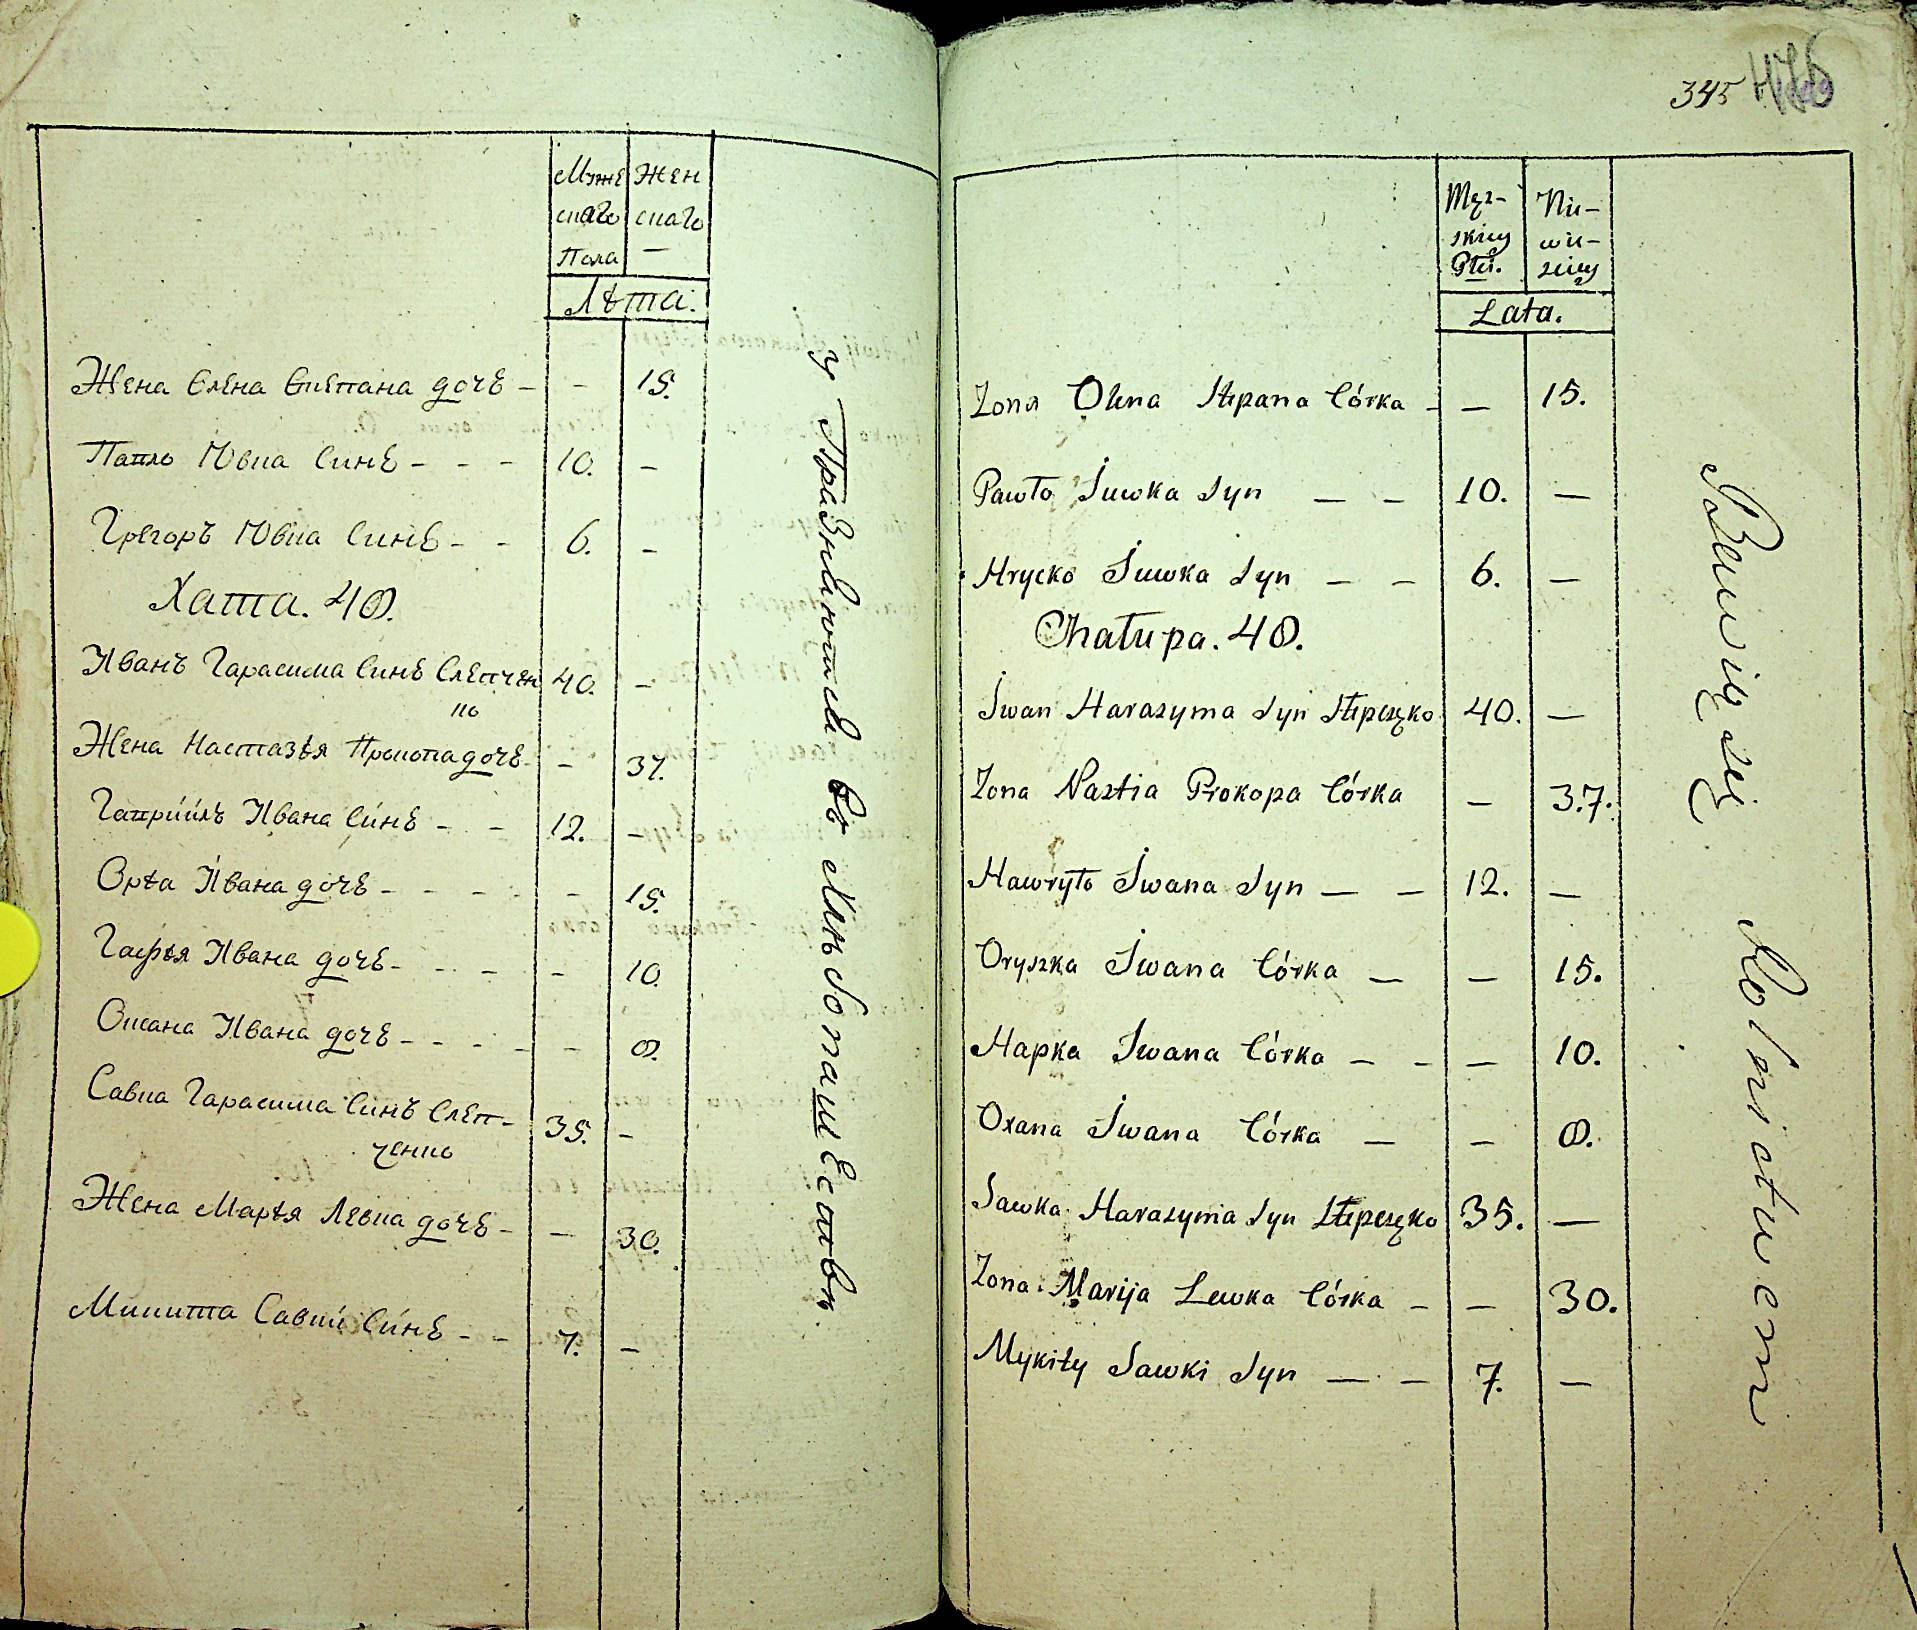 Муже
скаго
Пола
Жен
скаго
—
Лѣта.
Жена Елена Степана дочь – – 15.
Павло Ювка Синь – – – 10. –
Грегоръ Ювка Синь – – 6. –
Хата. 48.
Иванъ Гарасима Синь Слепчен 40. –
ко
Жена Настазѣя Прокопа дочь – – 37.
Гаврійлъ Ивана Синь – – 12. –
Орѣа Ивана дочь – – – – 15.
Гафѣя Ивана дочь – – – – 10
Оксана Ивана дочь – – – – – 8.
Савка Гарасима Синъ Слеп- 35. –
ченко
Жена Марѣя Левка дочь – – 30.
Микита Савки Синь – – 7. –
345
Męz-
skiey
Płci.
Nie-
wie-
sciey
Lata.
Zona Olena Stepana Córka – – 15.
Pawło Juwka Syn – – 10. –
Hrycko Juwka Syn – – 6. –
Chałupa. 48.
Jwan Harasyma Syn Słepczęko 40. –
Zona Nastia Prokopa Córka – 37.
Hawryło Jwana Syn – – 12. –
Oryszka Jwana Córka – – 15.
Hapka Jwana Córka – – – 10.
Oxana Jwana Córka – – 8.
Sawka Harasyma Syn Słepczęko 35. –
Zona Marija Lewka Córka – – 30.
Mykity Sawki Syn – – 7. –
Rolnictwem